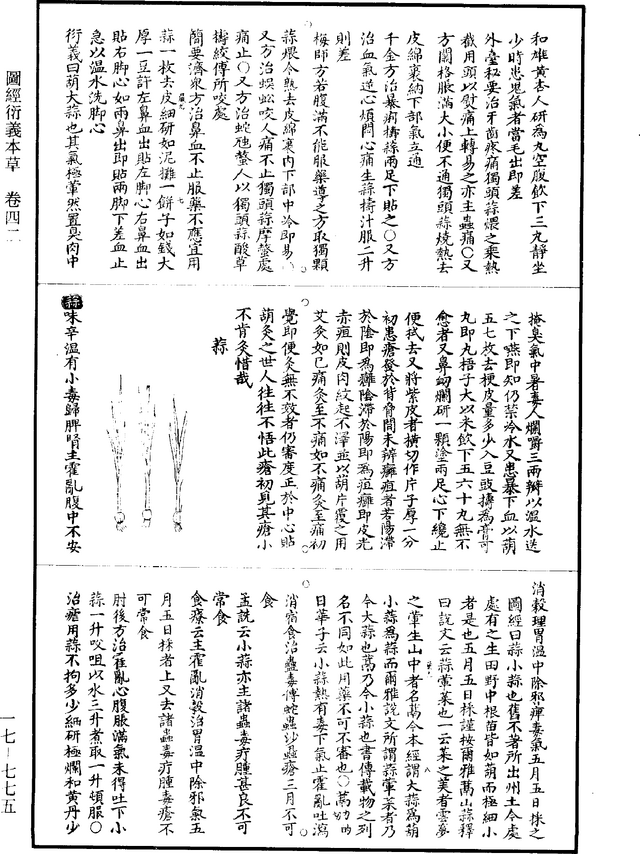 圖經衍義本草　卷四二
和雄黃杏人研為丸空腹飲下三丸靜坐
少時患鬼氣者當毛出即差
外臺秘要治牙齒疼痛獨頭蒜煨之乘熱
截用頭以熨痛上轉易之亦主蟲痛〇又
方關格脹滿大小便不通獨頭蒜燒熟去
皮綿裹納下部氣立通
千金方治暴痢擣蒜兩足下貼之〇又方
治血氣逆心煩悶心痛生蒜擣汁服二升
則差
梅師方若腹滿不能服藥導之方取獨顆
蒜煨令熟去皮綿裹內下部中冷即易〇
又方治蜈蚣咬人痛不止獨頭蒜摩螫處
痛止〇又方治蛇虺螫人以獨頭蒜酸草
擣絞傅所咬處
簡要濟衆方治鼻血不止服藥不應宜用
蒜一枚去皮細研如泥攤一餅子如錢大
厚一豆許左鼻血出貼左脚心右鼻血出
貼右脚心如兩鼻出即貼兩脚下差血止
急以溫水洗脚心
衍義曰葫大蒜也其氣極葷然置臭肉中
掩臭氣中暑毒人爛嚼三兩瓣以溫水送
之下嚥即知仍禁冷水又患暴下血以葫
五七枚去梗皮量多少入豆豉擣為膏可
丸即丸梧子大以米飲下五六十丸無不
愈者又鼻衂爛研一顆塗兩足心下纔止
便拭去又將紫皮者橫切作片子厚一分
初患瘡發於背脅間未辨癰疽者若陽滯
於陰即為癰陰滯於陽即為疽癰即皮光
赤疽則皮肉紋起不澤並以葫片覆之用
艾灸如已痛灸至不痛如不痛灸至痛初
覺即便灸無不效者仍審度正於中心貼
葫灸之世人往往不悟此瘡初見其瘡小
不肯灸惜哉
蒜
蒜味辛溫有小毒歸脾腎主霍亂腹中不安
消穀理胃溫中除邪痺毒氣五月五日採之
圖經曰蒜小蒜也舊不著所出州土今處
處有之生田野中根苗皆如葫而極細小
者是也五月五日採謹按爾雅蒚山蒜釋
曰說文云蒜葷菜也一云菜之美者雲夢
之葷生山中者名蒚今本經謂大蒜為葫
小蒜為蒜而爾雅說文所謂蒜葷菜者乃
今大蒜也蒚乃今小蒜也書傳載物之列
名不同如此用藥不可不審也〇蒚
日華子云小蒜熱有毒下氣止霍亂吐瀉
消宿食治蠱毒傅蛇蟲沙蝨瘡三月不可
食
孟詵云小蒜亦主諸蟲毒疔腫甚良不可
常食
食療云主霍亂消穀治胃溫中除邪氣五
月五日採者上又去諸蟲毒疔腫毒瘡不
可常食
肘後方治霍亂心腹脹滿氣未得吐下小
蒜一升㕮咀以水三升煮取一升頓服〇
治瘧用蒜不拘多少細研極爛和黃丹少
一七－七七五